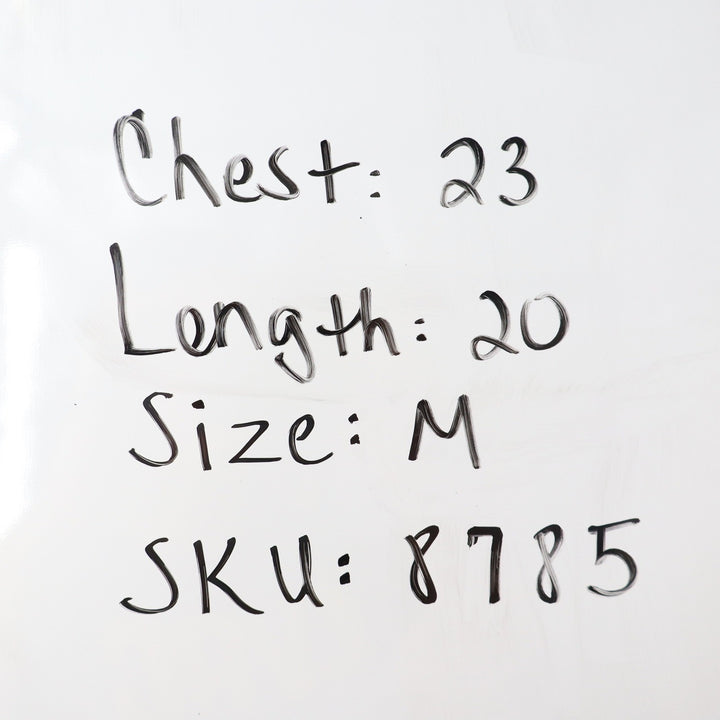 Chest: 23
Length: 20
Size: M
SKU: 8785